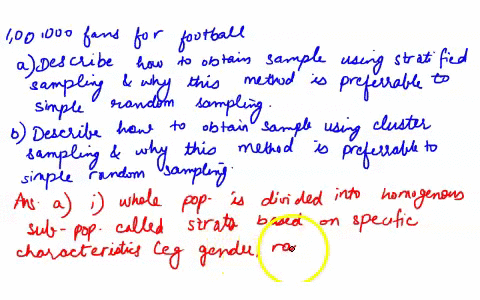 1,00,000 fans for football
a) Describe how to obtain sample using stratified
sampling & why this method is preferrable to
simple random sampling.
b) Describe how to obtain sample using cluster
sampling & why this method is preferrable to
simple random sampling.
Ans. a) i) whole pop. is divided into homogenous
sub-pop. called strata based on specific
characteristics (eg gender, ra